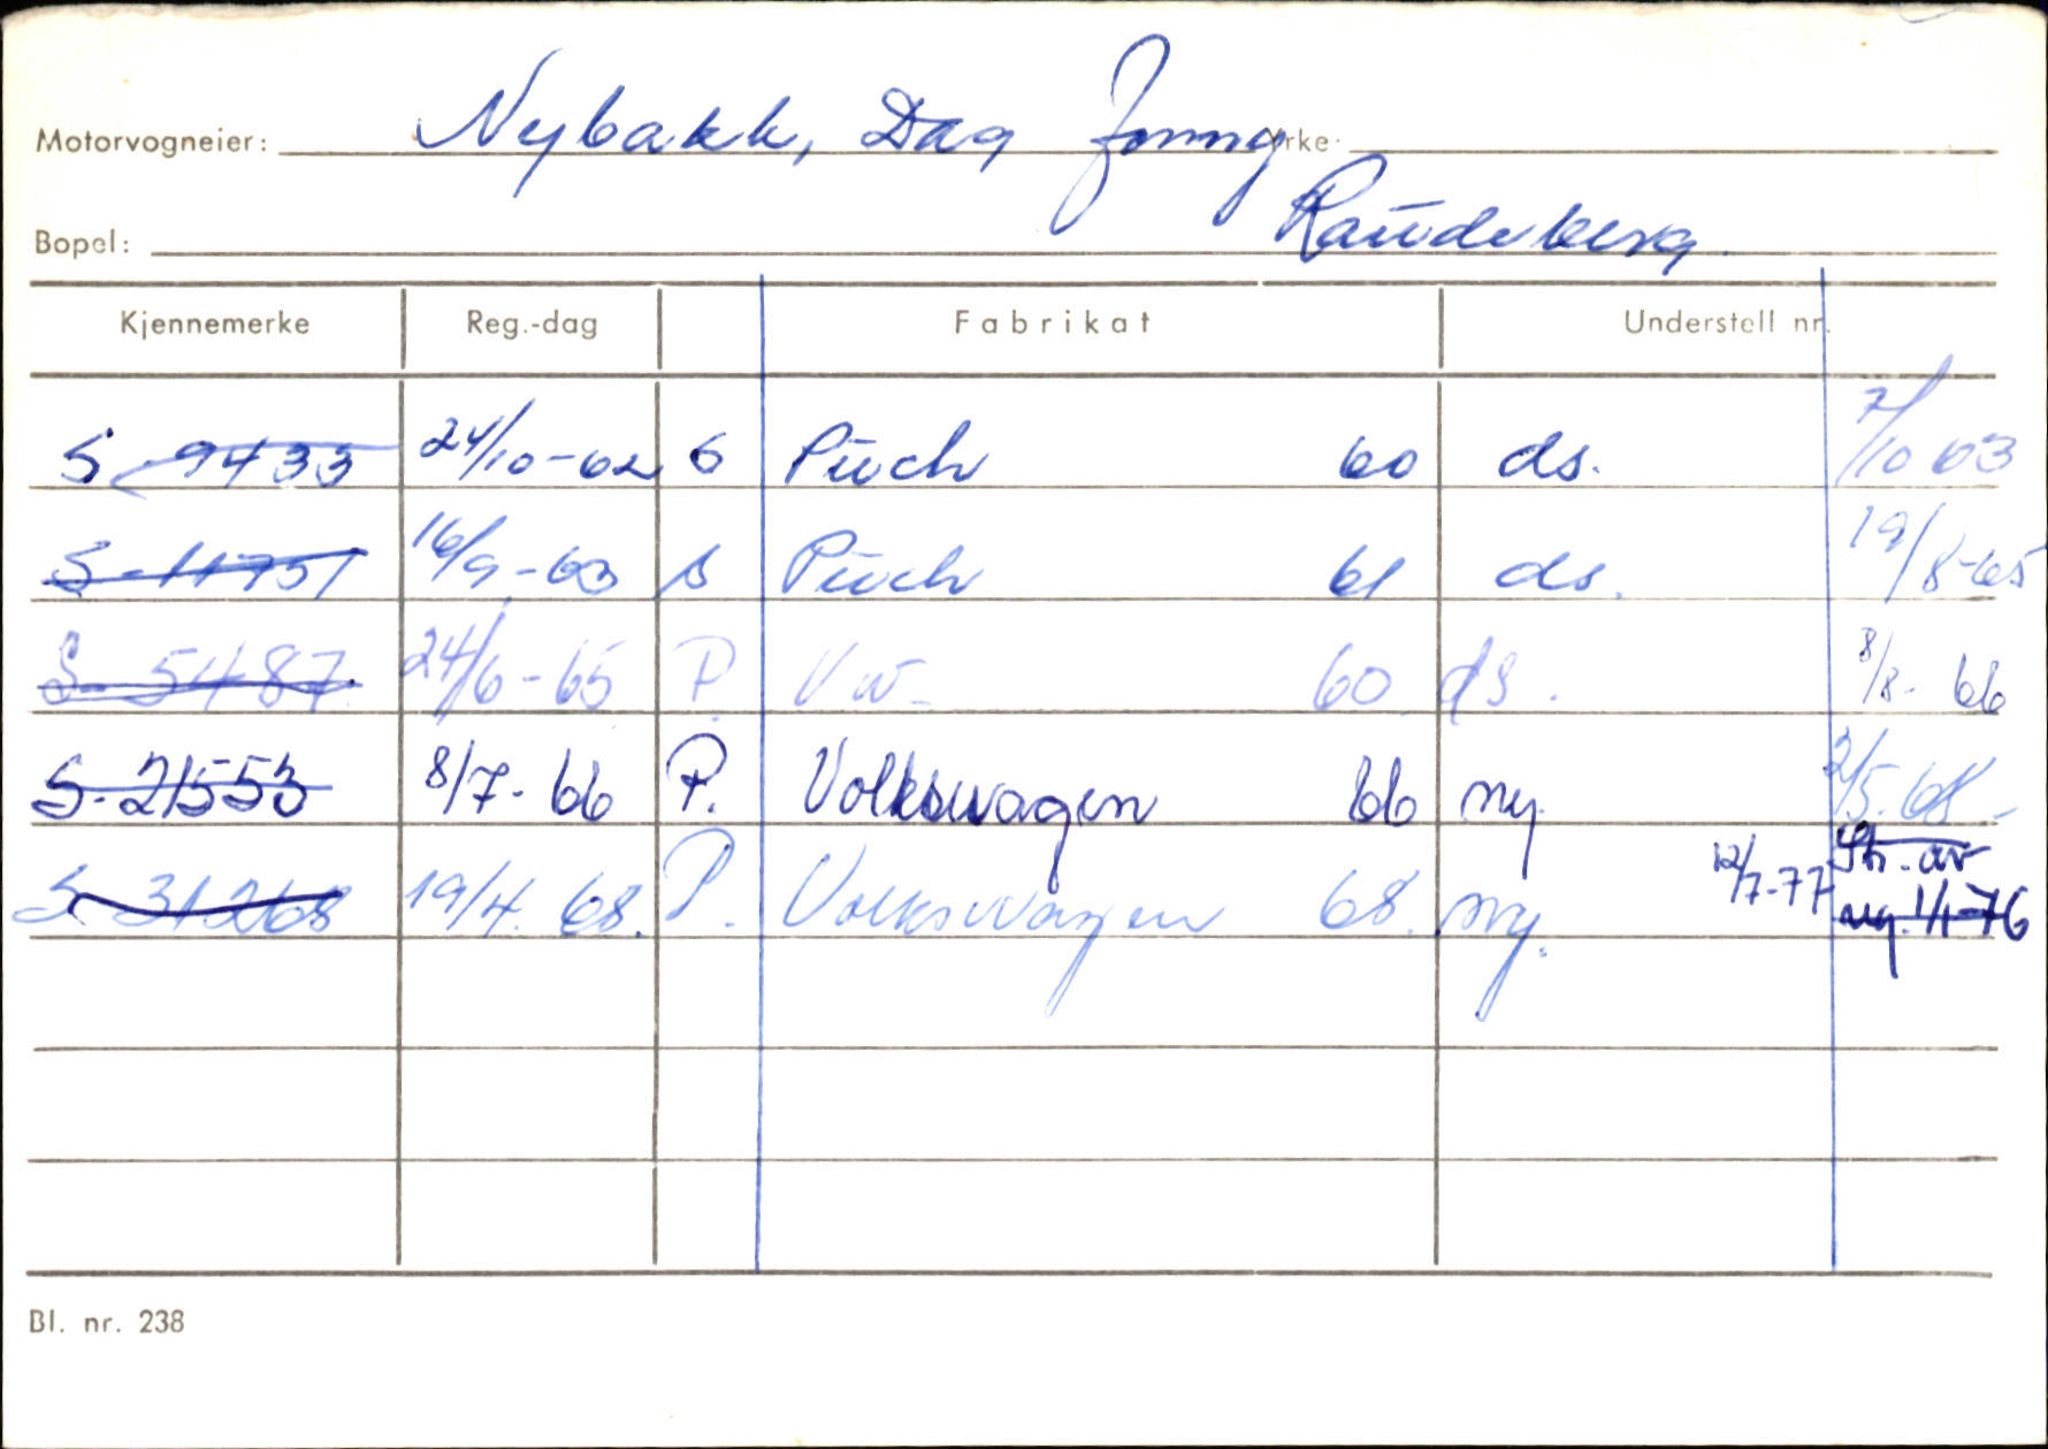 Motorvogneier: Nybakk, Dag Jonny Yrke:
Bopel: Raudeberg.
Kjennemerke Reg.-dag Fabrikat Understell nr.
S-9433 24/10-62 S Puch 60 ds. 7/10 63
S-11751 16/9-63 S Puch 61 ds. 19/8-65
S-5487 24/6-65 P. VW- 60 ds. 8/8-66
S-21553 8/7-66 P. Volkswagen 66 ny. 2/5.68-
S-31268 19/4.68. P. Volkswagen 68. ny. 12/7-77 Str. av
reg. 1/1-76
Bl. nr. 238